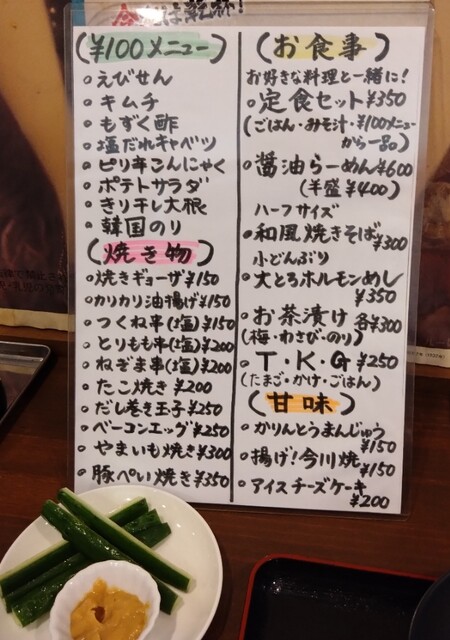 今 は乾杯!
(¥100メニュー)
・えびせん
・キムチ
・もずく酢
・塩だれキャベツ
・ピリ辛こんにゃく
・ポテトサラダ
・きり干し大根
・韓国のり
(焼き物)
・焼きギョーザ¥150
・カリカリ油揚げ¥150
・つくね串(塩)¥150
・とりもも串(塩)¥200
・ねぎま串(塩)¥200
・たこ焼き ¥200
・だし巻き玉子¥250
・ベーコンエッグ¥250
・やまいも焼き¥300
・豚ぺい焼き¥350
(お食事)
お好きな料理と一緒に!
・定食セット¥350
(ごはん・みそ汁・¥100メニュー
から一品)
・醤油らーめん¥600
(半盛¥400)
ハーフサイズ
・和風焼きそば¥300
小どんぶり
・大とろホルモンめし
¥350
・お茶漬け各¥300
(梅・わさび・のり)
・T・K・G¥250
(たまご・かけ・ごはん)
(甘味)
・かりんとうまんじゅう
¥150
・揚げ!今川焼¥150
・アイスチーズケーキ
¥200